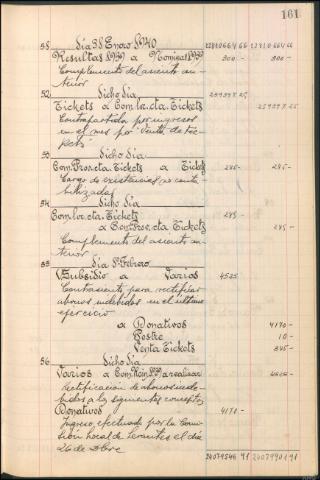 161
51 Día 31 Enero 1940 22810664 66 23210664 66
Resultas 1939 a Nóminas 1939 300 - 300 -
Complemento del asiento an-
terior
52 Dicho Día
Tickets a Com. lor. cta. Tickets 25939 25 25939 25
Contrapartida por ingresos
en el mes por Venta de tic-
kets
53 Dicho Día
Com. Prov. cta. Tickets a Tickets 285- 285-
Cargo de existencias no conta-
bilizadas
54 Dicho Día
Com. lor. cta. Tickets 285-
a Com. Prov. cta. Tickets 285-
Complemento del asiento an-
terior
55 Día 1º Febrero
Subsidio a Varios 4525
Contraasiento para rectificar
abonos indebidos en el último
ejercicio
a Donativos 4170-
Postre 10-
Venta Tickets 345-
56 Dicho Día
Varios a Com.
rectificación de abonos inde-
bidos a los siguientes conceptos
Donativos 4170-
Ingreso efectuado por la Comi-
sión local de Levantes el día
26 de Dbre
24079546 91 24079901 91